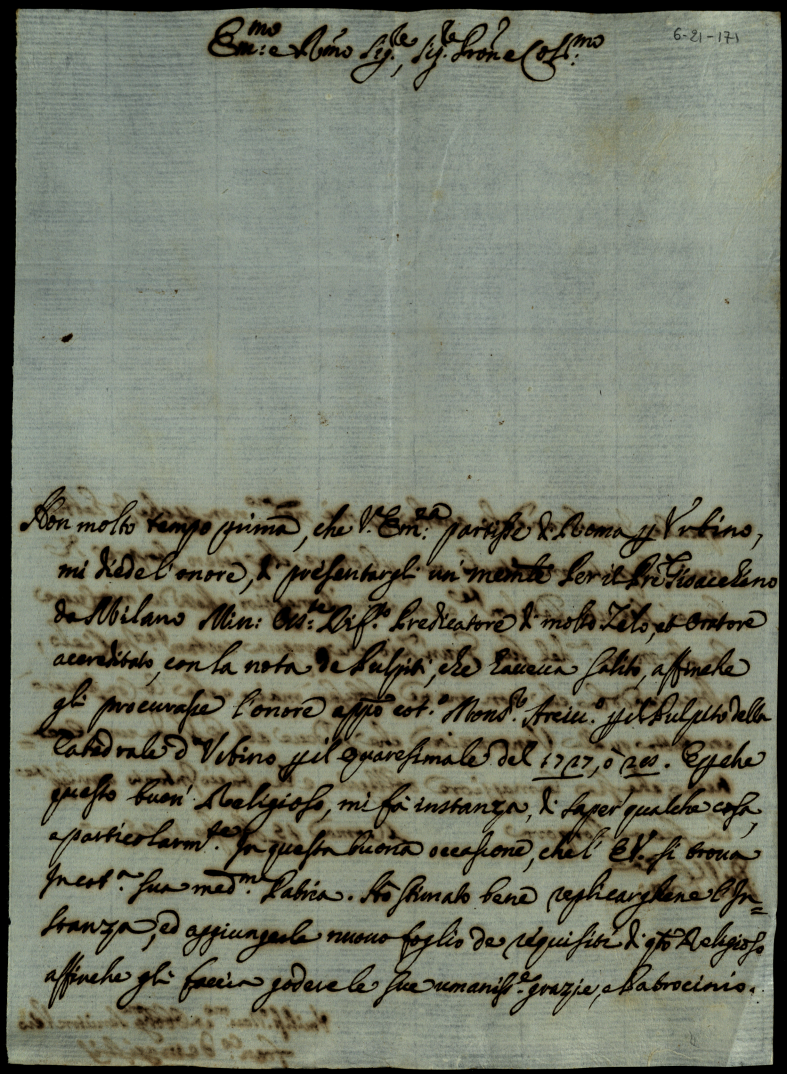 6-21-171
Em:mo e Rmo Sig.re, Sig. Prone Coll:mo
Non molto tempo prima, che V. Em:za partisse di Roma p Urbino,
mi diede l'onore, di presentargli un mem:le per il Pre
da Milano Min: Oss:te Predicatore di molto Zelo, et Oratore
accreditato, con la nota de Pulpiti, che haveva salito, affinche
gli procurasse l'onore appo cot.o Mons.re Arciv.o p il Pulpito della
Catedrale d'Urbino p il Quaresimale del 1727, ò 28. E perche
questo buon Religioso, mi fà instanza, di saper qualche cosa,
e particolarm.te In questa buona occasione, che l' E.V. si trova
In cot.a sua med.ma Patria. Hò stimato bene replicarghene l'In=
stanza, ed aggiungerle nuovo foglio de requisiti di qto Religioso
affinche gli faccia godere le sue umaniss.e grazie, e Patrocinio.